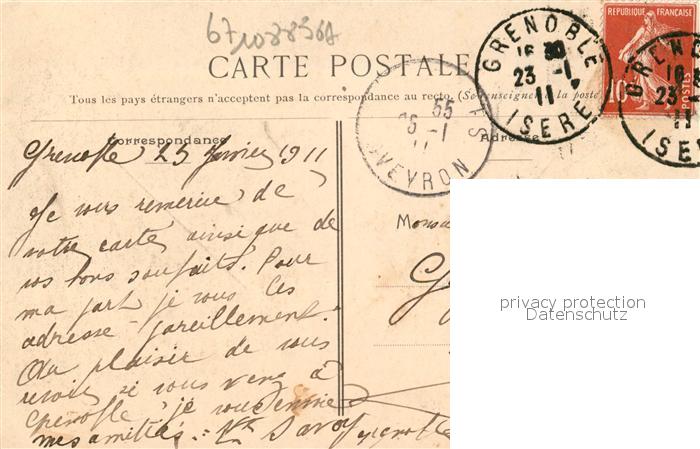 6710885GA
CARTE POSTALE
Tous les pays étrangers n'acceptent pas la correspondance au recto. (Se renseigner à la poste
Correspondance
Adresse
REPUBLIQUE FRANÇAISE
10
POSTES
GRENOBLE
16 30
23 -1
11
ISERE
GRENOB
16
23
11
ISERE
55
-1
11
AVEYRON
Grenoble 23 Janvier 1911
Je vous remercie de
votre carte ainsi que de
vos bons souhaits. Pour
ma part je vous les
adresse pareillement.
Au plaisir de vous
revoir si vous venez à
Grenoble je vous envoie
mes amitiés
Monsie
privacy protection
Datenschutz